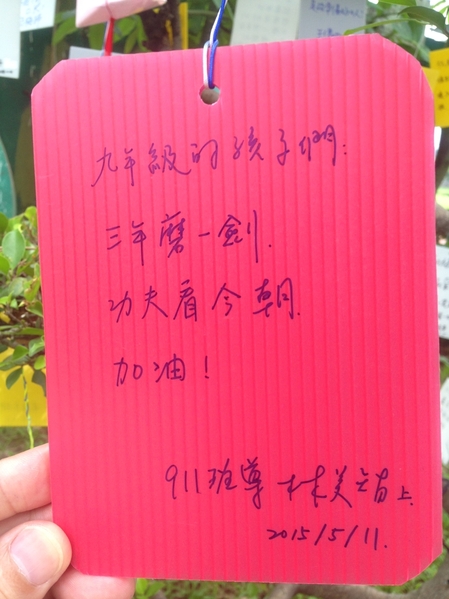 九年級的孩子們：
三年磨一劍.
功夫看今朝.
加油！
911班導 林美 上.
2015/5/11.